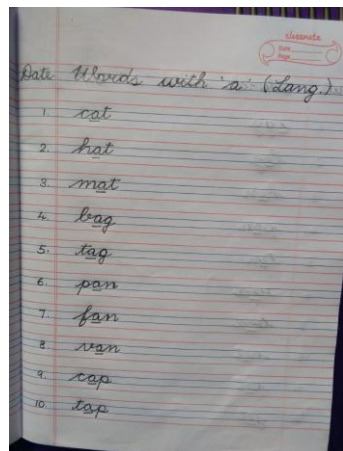 classmate
Date
Page
Date Words with 'a' (Lang.)
1. cat
2. hat
3. mat
4. bag
5. tag
6. pan
7. fan
8. van
9. cap
10. tap